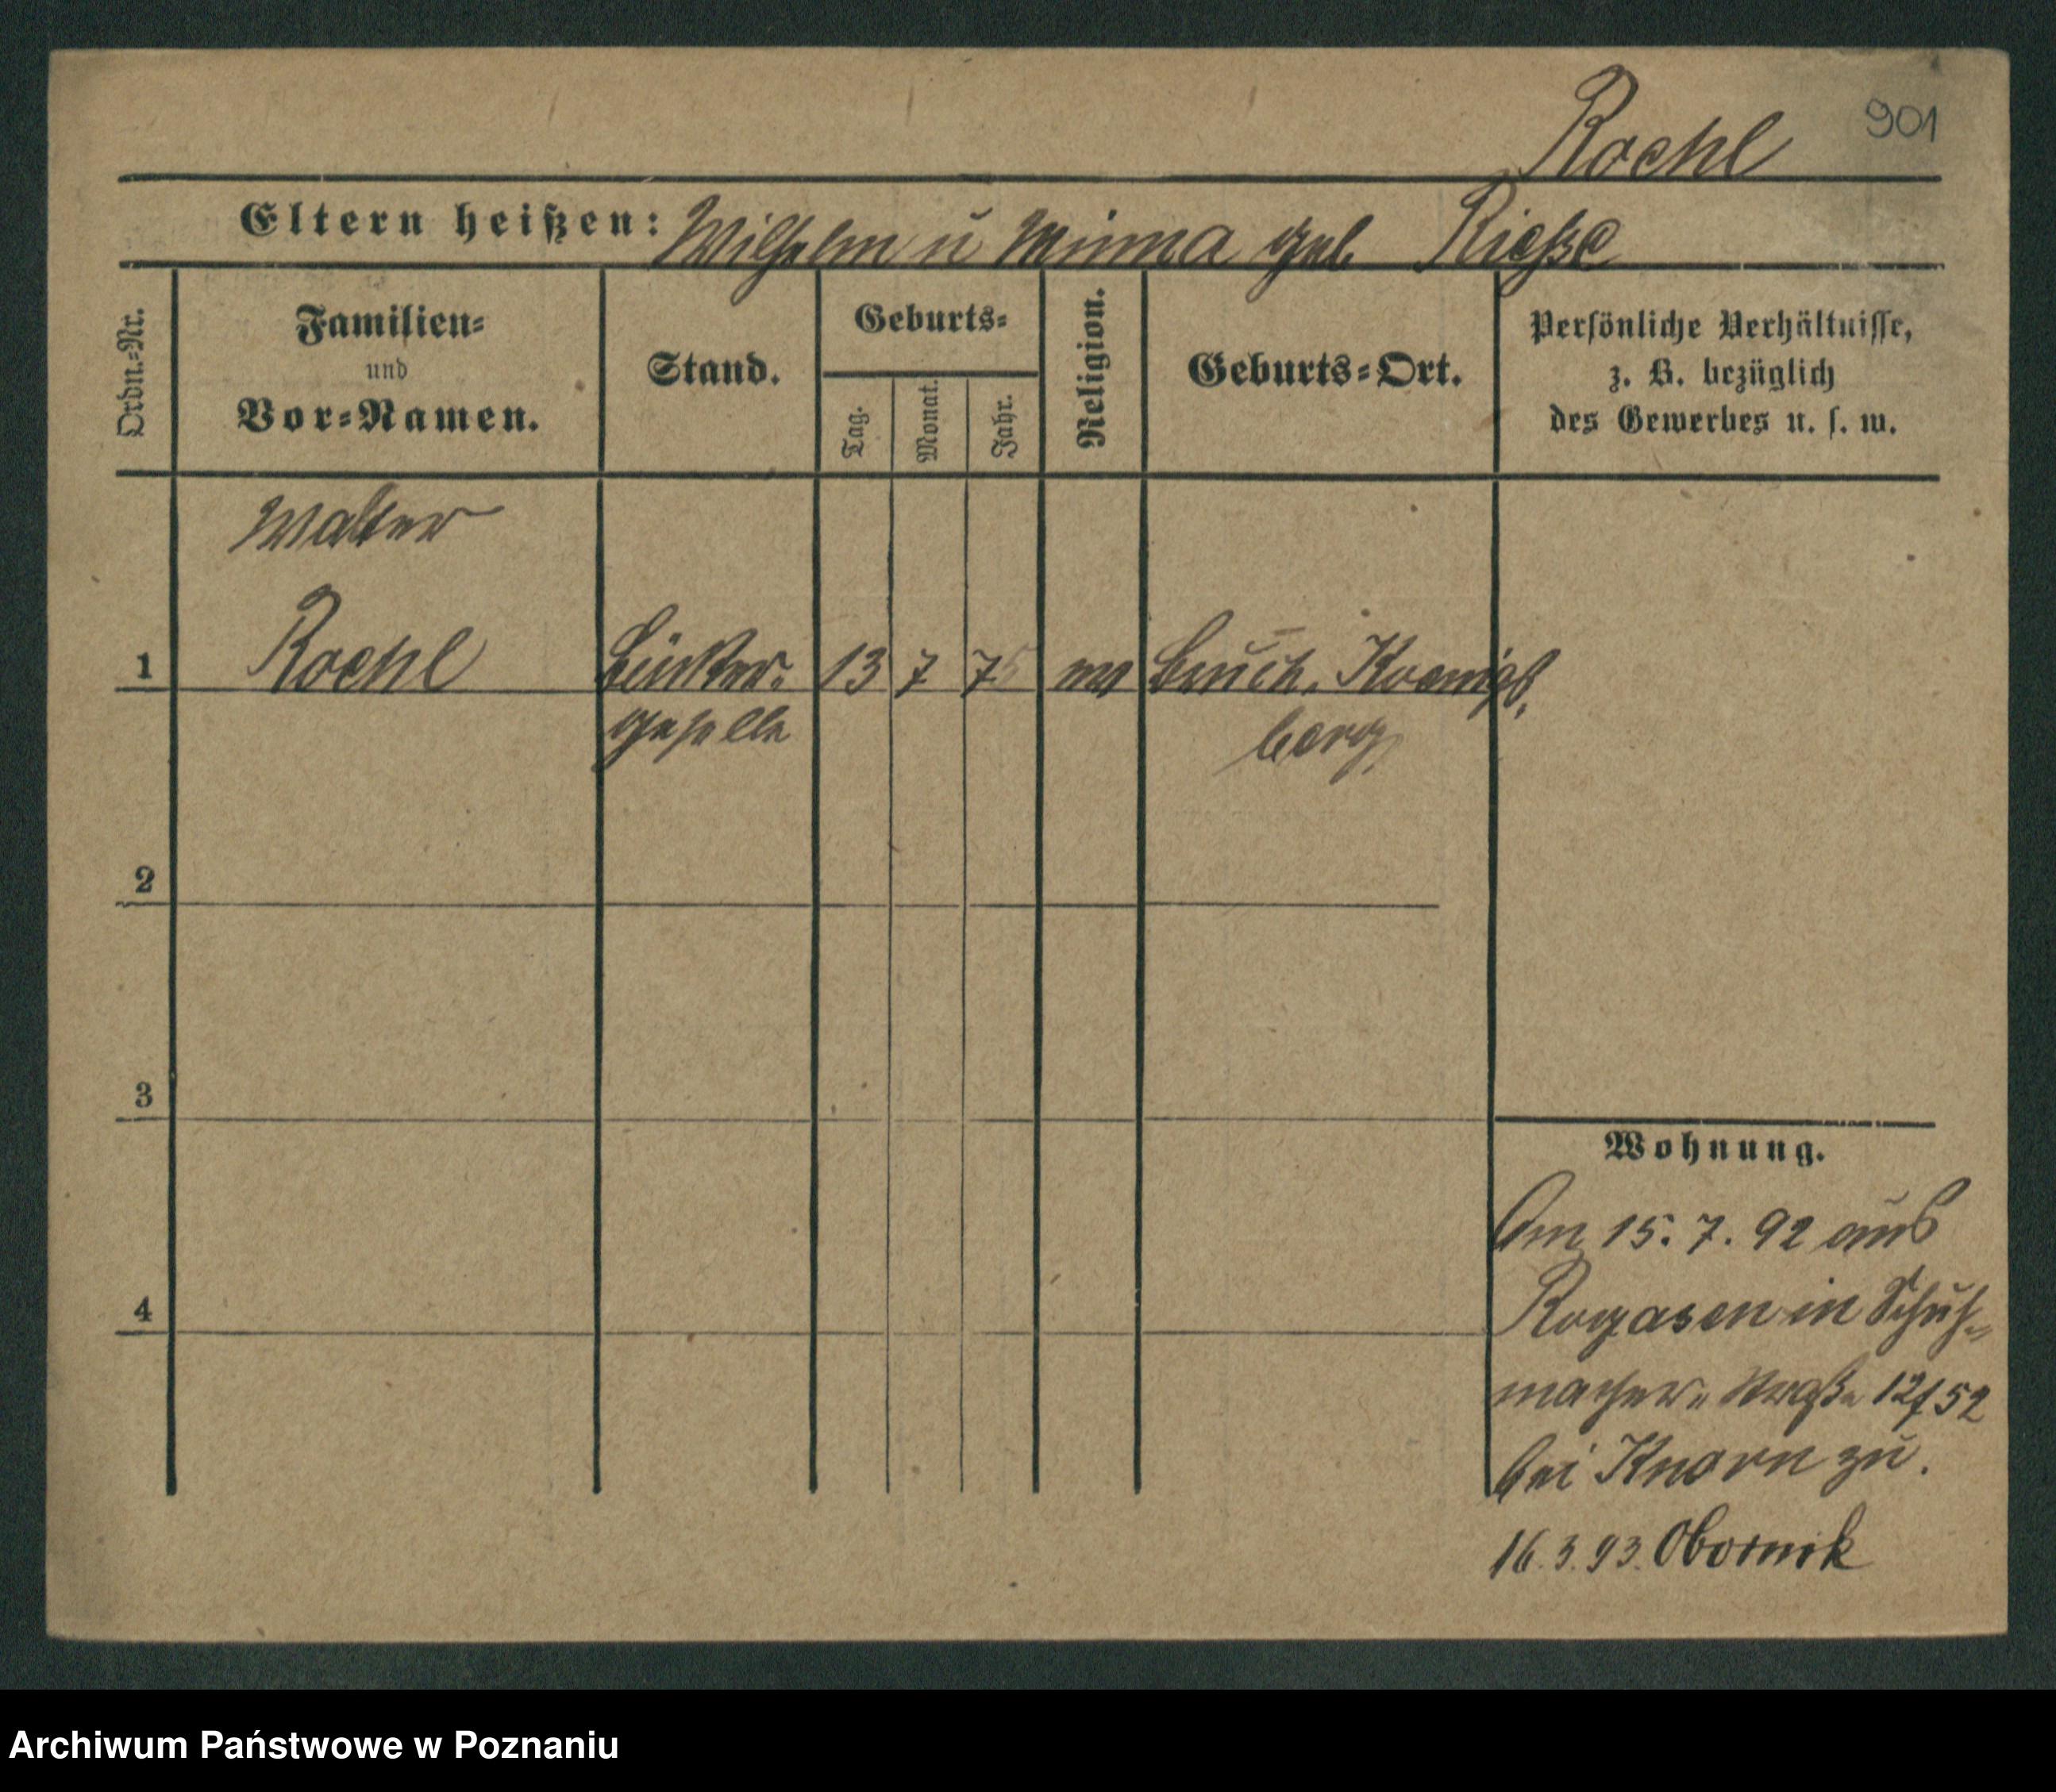 901
Roehl
Eltern heißen: Wilhelm u Minna geb. Rieße
Ordn.-Nr.
Familien-
und
Vor-Namen.
Stand.
Geburts-
Tag.
Monat.
Jahr.
Religion.
Geburts-Ort.
Persönliche Verhältnisse,
z. B. bezüglich
des Gewerbes u. s. w.
Walter
1 Roehl 13 7 75 ev Bruch, Koenigs,
geselle berg
2
3
4
Wohnung.
Am 15.7.92 aus
Rogasen in Schuh-
macher-Straße 12/52
bei Knorn zu.
16.3.93. Obornik
Archiwum Państwowe w Poznaniu